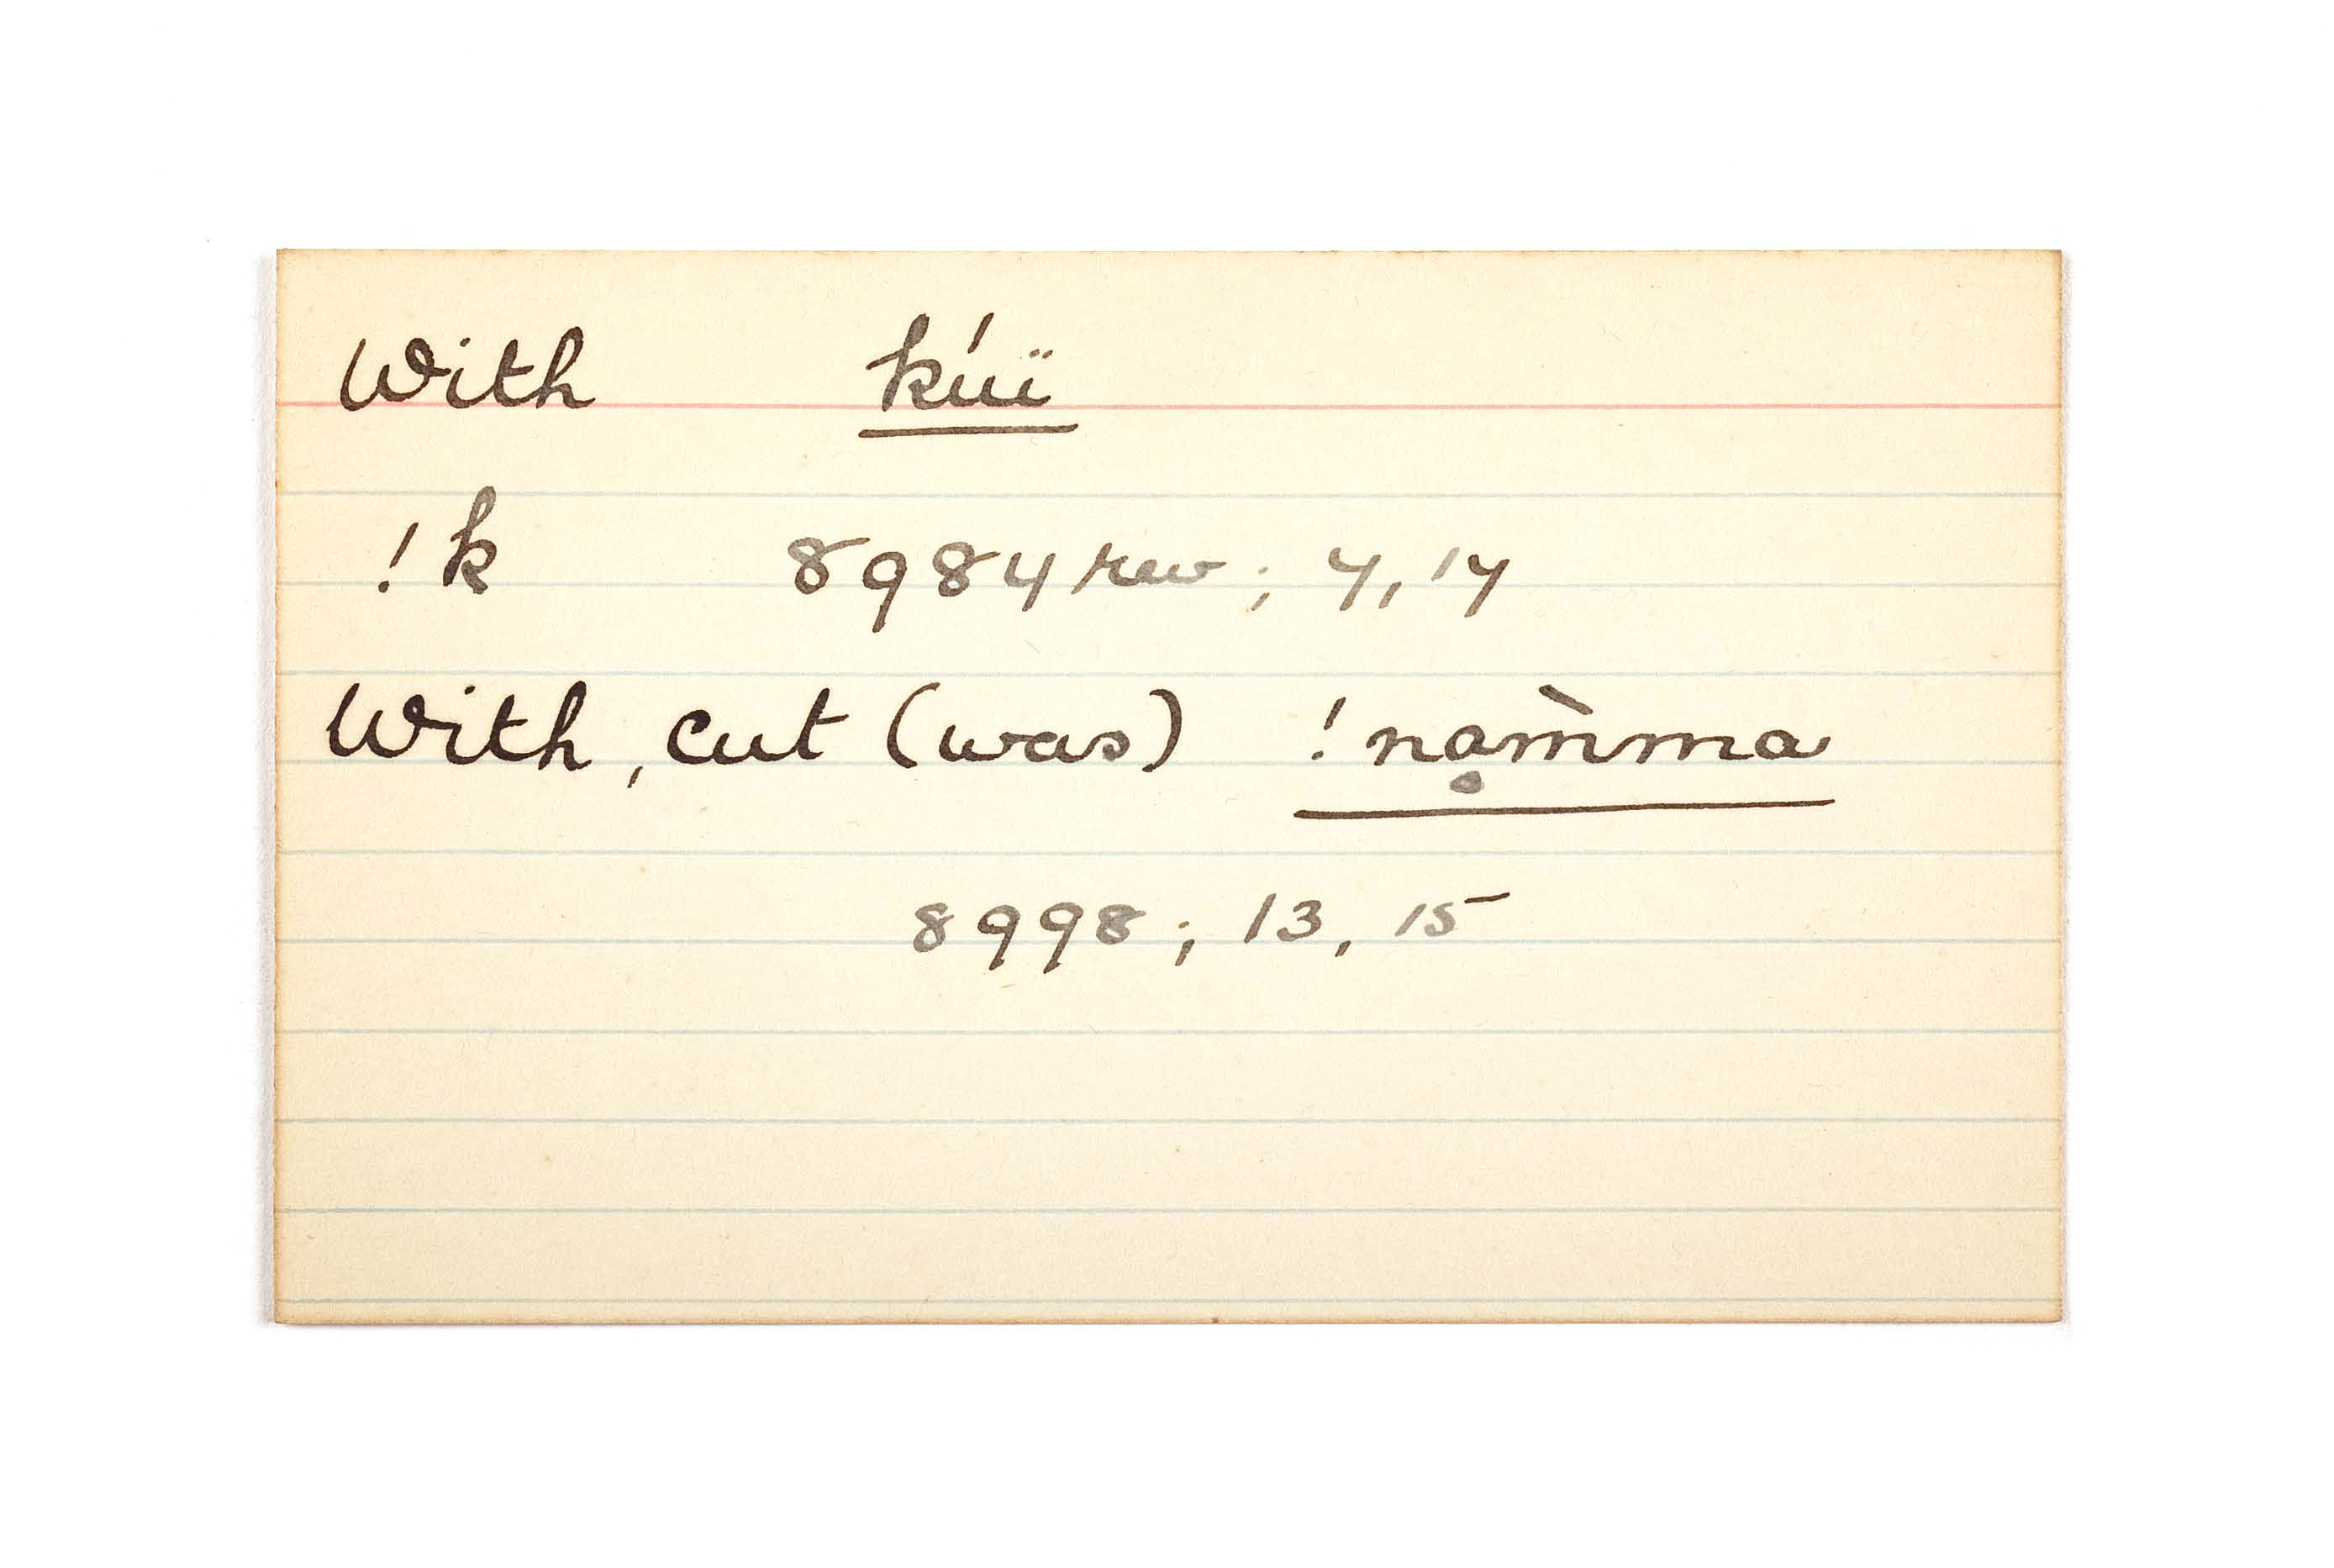 With kúï
!k 8984 rev; 7, 17
With, cut (was) !nạm̀ma
8998; 13, 15